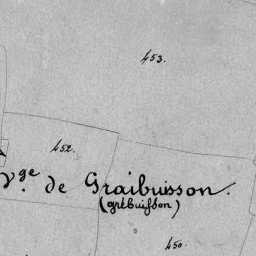 453.
452.
Vge de Graibuisson.
(grébuisson)
450.